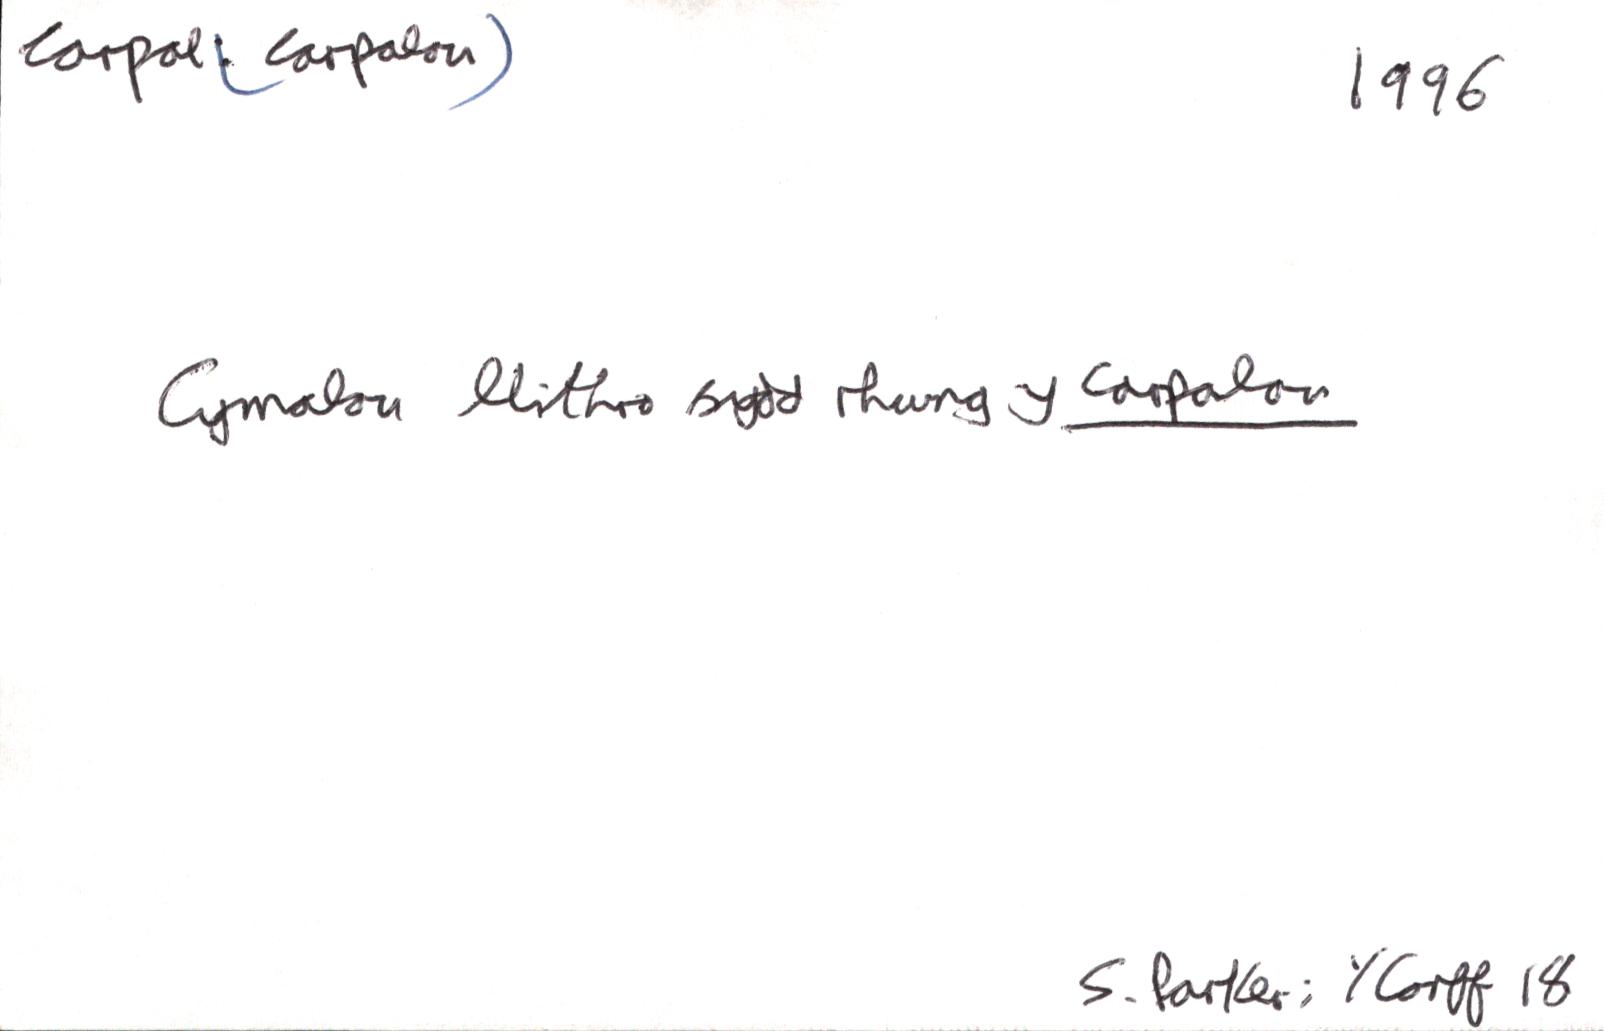 Carpal: (Carpalau)
1996
Cymalau llithro sydd rhwng y Carpalau
S. Parker: Y Corff 18